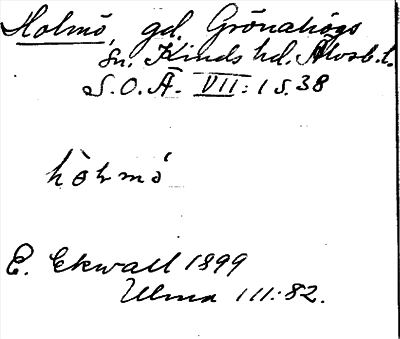 Holmö, gd. Grönahögs
sn. Kinds hd. Älvsb. l.
S.O.Ä. VII:1 s.38
hòlmó
E. Ekwall 1899
Ulma 111:82.